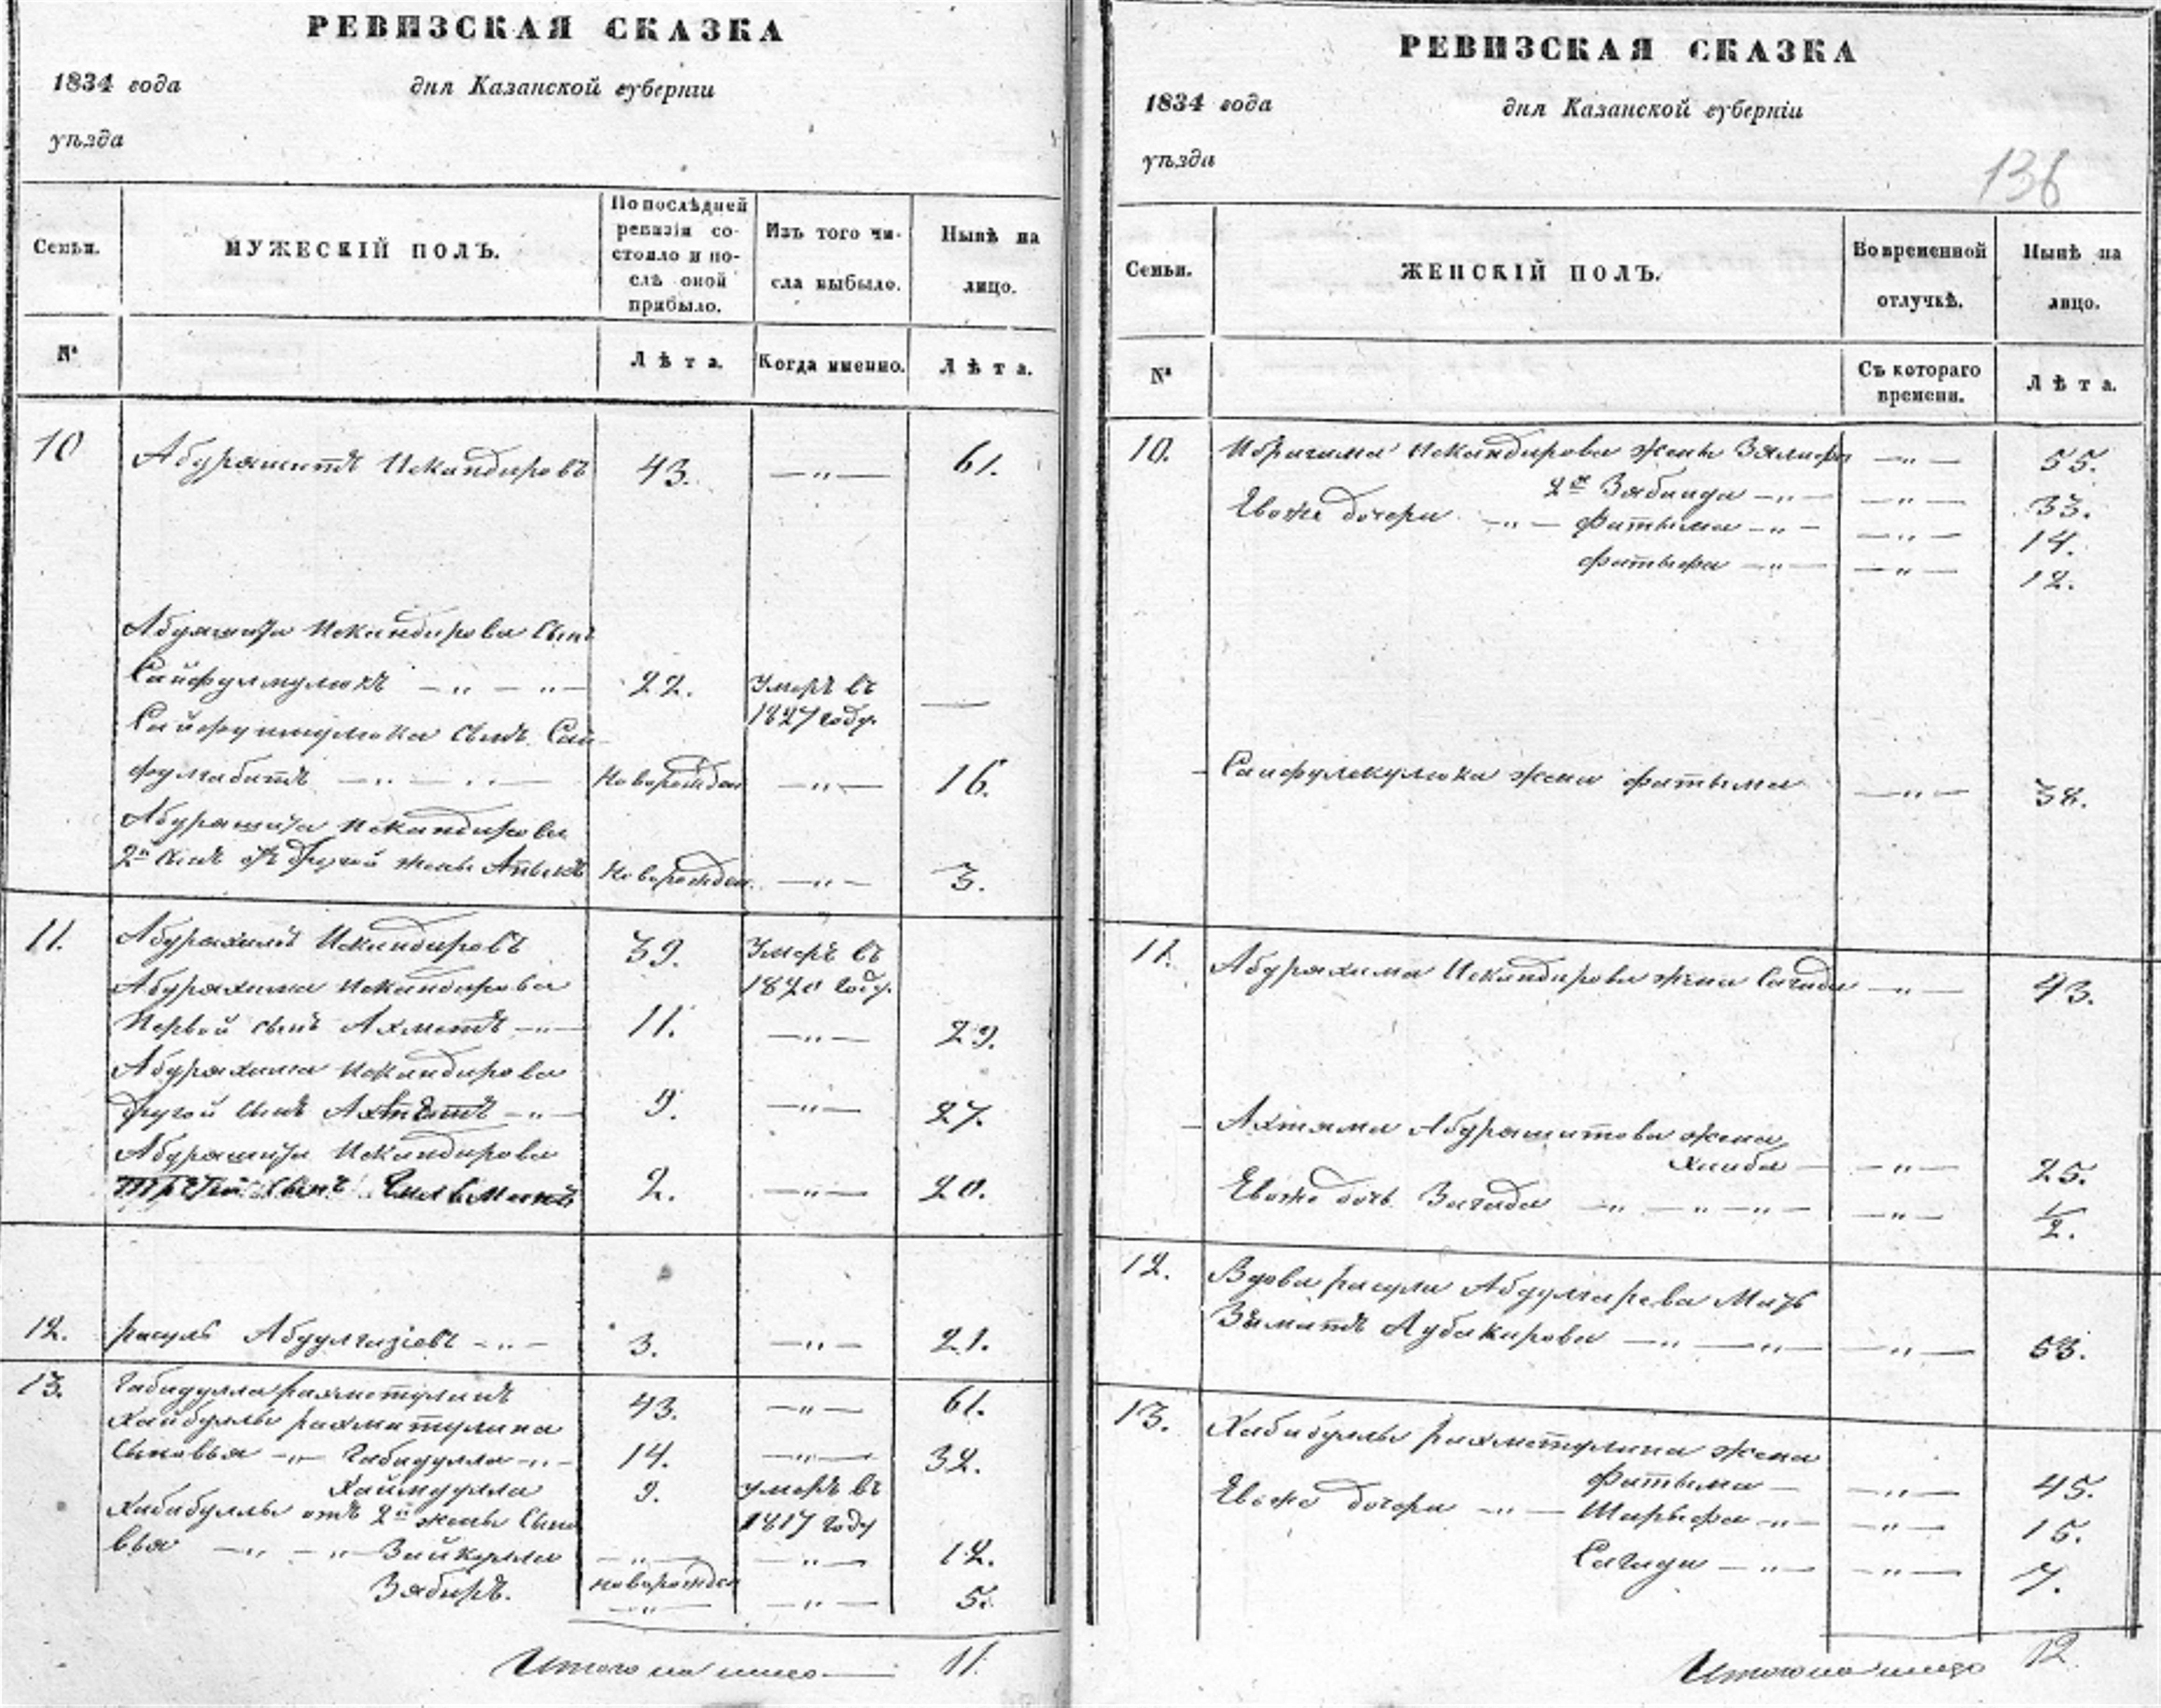 РЕВИЗСКАЯ СКАЗКА
1834 года дня Казанской губернiи
уѣзда
Семьи. МУЖЕСКIЙ ПОЛЪ. По послѣдней ревизiи состояло и послѣ оной прибыло. Изъ того числа выбыло. Нынѣ на лицо.
№ Лѣта. Когда именно. Лѣта.
10 Абдряшитъ Искандировъ 43. —"— 61.
Абдряшита Искандирова сынъ
Сайфулмулюкъ —"—"— 22. Умеръ въ 1827 году. —
Сайфулмулюка сынъ Сай-
фулгабитъ —"—"— Новорожден —"— 16.
Абдряшита Искандирова
2й сынъ отъ другой жены Новорожден. —"— 3.
11. Абдряхимъ Искандировъ 39. Умеръ въ 1820 году.
Абдряхима Искандирова
Первой сынъ Ахметъ —"— 11. —"— 29.
Абдряхима Искандирова
другой сынъ —"— 9. —"— 27.
Абдряшита Искандирова
третiй сынъ 2. —"— 20.
12. Расуль Абдулгазiевъ —"— 3. —"— 21.
13. Габидулла Рахметулинъ 43. —"— 61.
Хабибуллы Рахматулина
сыновья —"— Габидулла —"— 14. —"— 32.
Хаймдулла 9. умеръ въ 1817 году
Хабибуллы отъ 2й жены сыно
вья —"—"— Зайнулла —"— —"— 12.
Зябиръ. новорожден —"— —"— 5.
Итого на лицо — 11.
РЕВИЗСКАЯ СКАЗКА
1834 года дня Казанской губернiи
уѣзда
136
Семьи. ЖЕНСКIЙ ПОЛЪ. Во временной отлучкѣ. Нынѣ на лицо.
№ Съ котораго времени. Лѣта.
10. Ибрагима Искандирова жены Зялифа —"— 55.
2я Зябида —"— —"— 33.
Ево же дочери —"— Фатыма —"— —"— 14.
Фатыфа —"— —"— 12.
Сайфулмулюка жена Фатыма —"— 38.
11. Абдряхима Искандирова жена Сагида —"— 43.
Ахтяма Абдряшитова жена
Хииба — —"— 25.
Ево же дочь Загида —"—"—"— —"— ½.
12. Вдова Расуля Абдулгазева мать
Зяматъ Аубакирова —"— —"— —"— 53.
13. Хабибуллы Рахметулина жена
Фатыма — —"— 45.
Ево же дочери —"— Шарифа —"— —"— 15.
Сагида —"— —"— 7.
Итого на лицо 12.